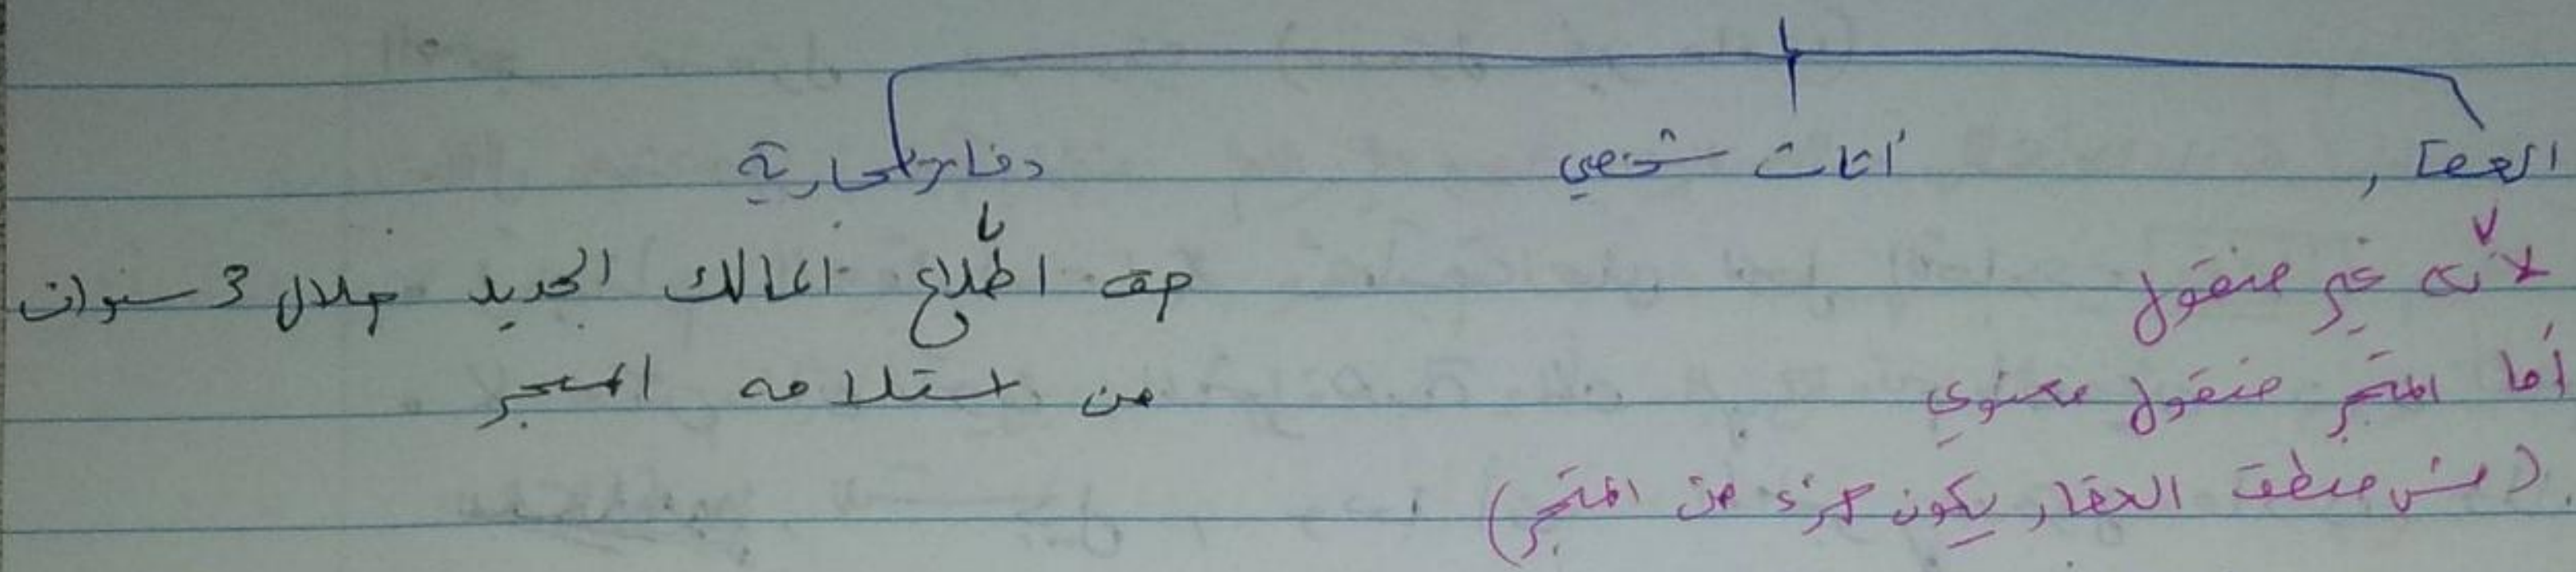 العقار أثاث شخصي دفاتر تجارية
لأنه غير منقول
أما المتجر منقول معنوي
(مش منطق العقار يكون جزء من المتجر)
حق اطلاع المالك الجديد خلال 3 سنوات
من استلامه المتجر